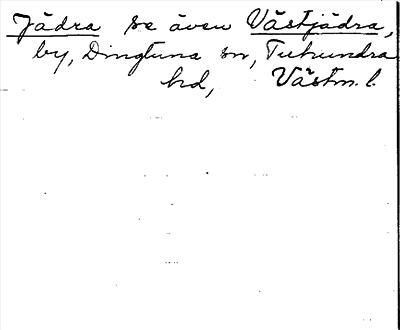 Jädra se även Västjädra,
by, Dingtuna sn, Tuhundra
hd, Västm. l.